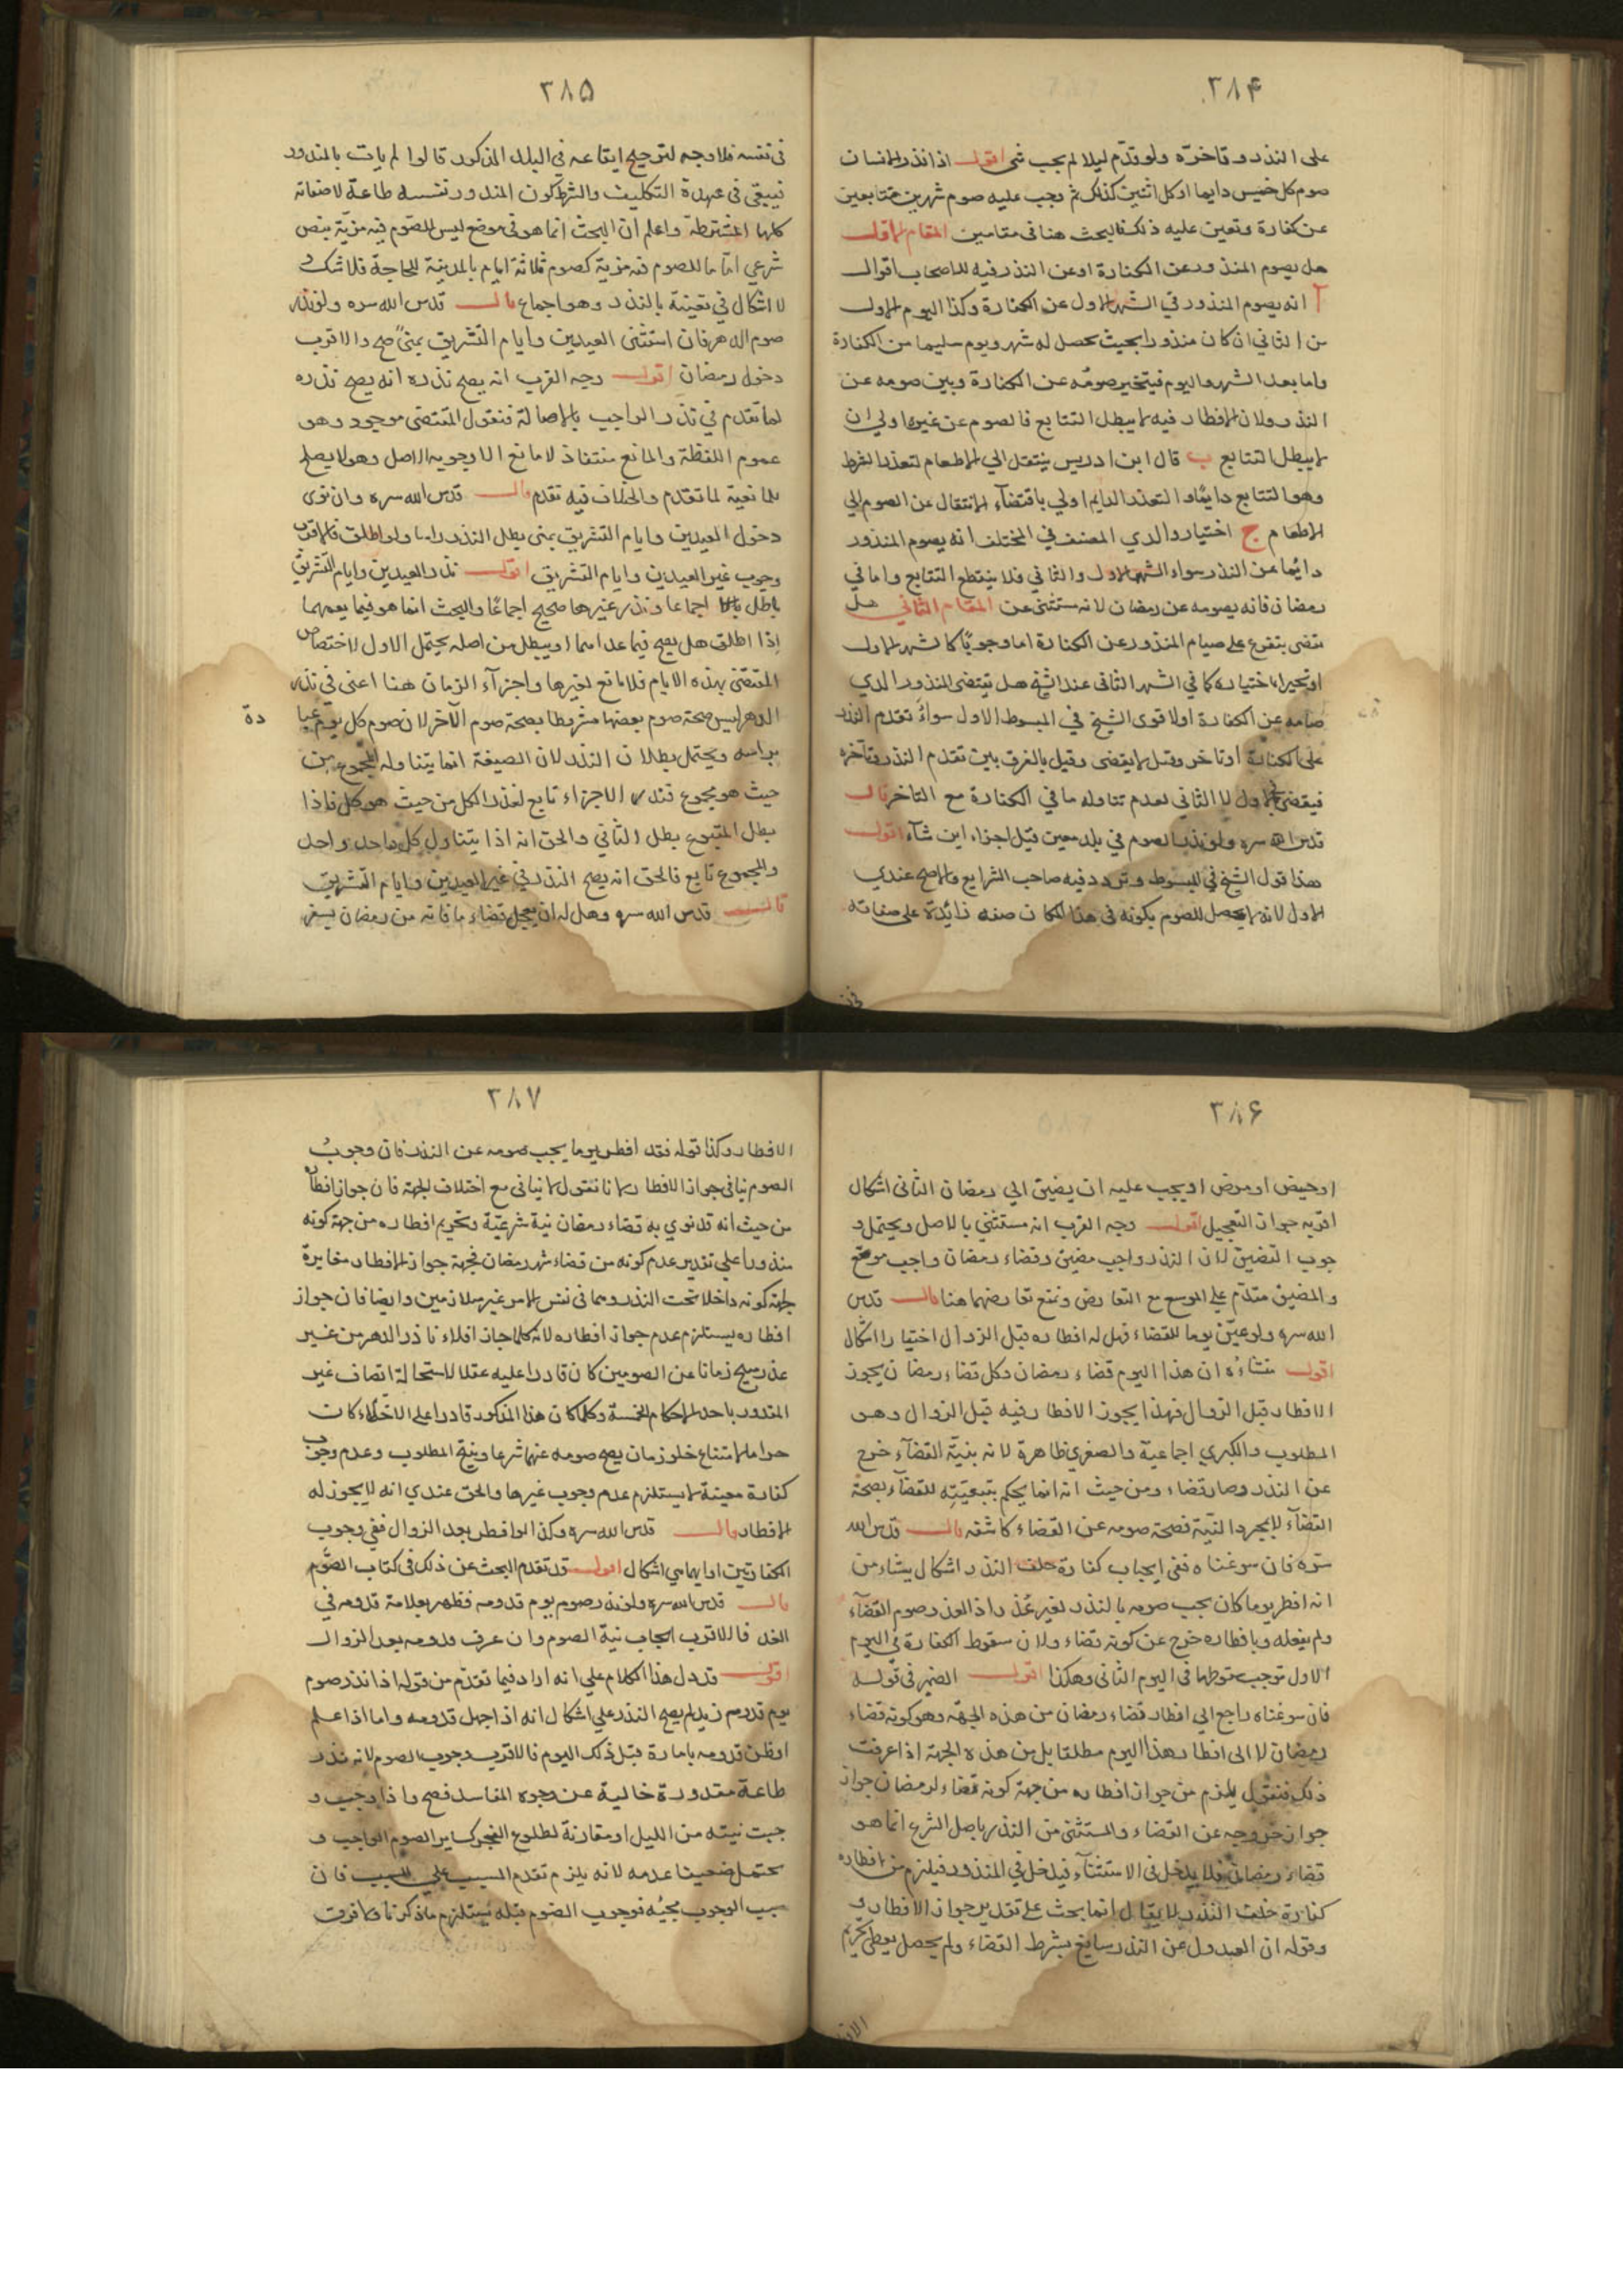 ٣٨۴
على النذر وتاخره ولو تقدم ليلا لم يجب شى اقول اذا نذر الانسان
صوم كل خميس دايما او كل اثنين كذلك ثم وجب عليه صوم شهرين متتابعين
عن كفارة وتعين عليه ذلك فالبحث هنا فى مقامين المقام الاول
هل يصوم المنذور عن الكفارة او عن النذر فيه للاصحاب اقوال
آ انه يصوم المنذور في الشهر الاول عن الكفارة وكذا اليوم الاول
من الثاني ان كان منذورا بحيث يحصل له شهر ويوم سليما من الكفارة
واما بعد الشهر واليوم فيتخير صومه عن الكفارة وبين صومه عن
النذر ولان الافطار فيه لا يبطل التتابع فالصوم عن غيرها اولي ان
لا يبطل التتابع ب قال ابن ادريس ينتقل الي الاطعام لتعذر الشرط
وهو التتابع دايما والتعذر الدايم اولي باقتضاء الانتقال عن الصوم الي
الاطعام ج اختيار والدي المصنف في المختلف انه يصوم المنذور
دائما عن النذر سواء الشهر الاول والثاني فلا ينقطع التتابع واما في
رمضان فانه يصومه عن رمضان لانه مستثنى عن المقام الثاني هل
يقضى يتفرع على صيام المنذور عن الكفارة اما وجوبا كالشهر الاول
او تخييرا باختياره كما في الشهر الثانى عند الشيخ هل يقضى المنذور الذي
صامه عن الكفارة اولا قوى الشيخ في المبسوط الاول سواء تقدم النذر
على الكفارة او تاخر وقيل لا يقضى وقيل بالفرق بين تقدم النذر وتاخره
فيقضى الاول لا الثانى لعدم تناوله ما في الكفارة مع التاخر قال
قدس الله سره ولو نذر الصوم في بلد معين قيل اجزاء اين شآء اقول
هذا قول الشيخ في المبسوط وتردد فيه صاحب الشرايع والاصح عندي
الاول لانه لا يحصل للصوم بكونه فى هذا المكان صفه زائدة على صفاته
فى
٣٨۵
فى نفسه فلا وجه لترجيح ايقاعه في البلد المذكور قالوا لم يات بالمنذور
فيبقى فى عهدة التكليف والشرط كون المنذور نفسه طاعة لا صفاته
كلها المشترطة واعلم ان البحث انما هو فى موضع ليس للصوم فيه مزية بنص
شرعي اما ما للصوم فيه مزية كصوم ثلاثة ايام بالمدينة للحاجة فلا شك و
لا اشكال في تعينه بالنذر وهو اجماع قال قدس الله سره ولو نذر
صوم الدهر فان استثنى العيدين وايام التشريق بمنى صح والاقرب
دخول رمضان اقول وجه القرب انه يصح نذره انه يصح نذره
لما تقدم في نذر الواجب بالاصالة فنقول المقتضى موجود وهو
عموم اللفظة والمانع منتف اذ لا مانع الا وجوبه الاصل وهو لا يصلح
للمانعية لما تقدم والخلاف فيه تقدم قال قدس الله سره وان نوى
دخول العيدين وايام التشريق بمنى بطل النذر راسا ولو اطلق فالاقرب
وجوب غير العيدين وايام التشريق اقول نذر العيدين وايام التشريق
باطل اجماعا ونذر غيرها صحيح اجماعا والبحث انما هو فيما يعمهما
إذا اطلق هل يصح فيما عداهما او يبطل من اصله يحتمل الاول لاختصاص
المقتضى بهذه الايام فلا مانع لغيرها واجزآء الزمان هنا اعنى في نذر
الدهر ليس صحة صوم بعضها مشروطا بصحة صوم الآخر لان صوم كل يوم عبا
دة
براسه ويحتمل بطلان النذر لان الصيغة انما يتناوله المجموع من
حيث هو مجموع فنذر الاجزاء تابع لنذر الكل من حيث هو كل فاذا
بطل المتبوع بطل الثاني والحق انه اذا يتناول كل واحد واحد
والمجموع تابع فالحق انه يصح النذر في غير العيدين وايام التشريق
قال قدس الله سره وهل له ان يعجل قضاء ما فاته من رمضان بسفر
٣٨۶
او حيض او مرض او يجب عليه ان يضيق الي رمضان الثانى اشكال
اقربه جواز التعجيل اقول وجه القرب انه مستثنى بالاصل ويحتمل و
جوب التضيق لان النذر واجب مضيق وقضاء رمضان واجب موسع
والمضيق مقدم على الموسع مع التعارض ونمنع تعارضهما هنا قال قدس
الله سره ولو عين يوما للقضاء فهل له افطاره قبل الزوال اختيارا اشكال
اقول منشاءه ان هذا اليوم قضاء رمضان وكل قضاء رمضان يجوز
الافطار قبل الزوال فهذا يجوز الافطار فيه قبل الزوال وهو
المطلوب والكبري اجماعية والصغري ظاهرة لانه بنية القضآء خرج
عن النذر وصار قضاء ومن حيث انه انما يحكم بتبعيته للقضآء بصحة
القضآء لا بمجرد النية فصحة صومه عن القضاء كاشفه قال قدس الله
سره فان سوغناه ففى ايجاب كفارة خلف النذر اشكال ينشاء من
انه افطر يوما كان يجب صومه بالنذر لغير عذر اذ العذر صوم القضآء
ولم يفعله وبافطاره خرج عن كونه قضاء ولان سقوط الكفارة في اليوم
الاول توجب سقوطها فى اليوم الثانى وهكذا اقول الضمير فى قوله
فان سوغناه راجع الي افطار قضاء رمضان من هذه الجهة وهو كونه قضاء
رمضان لا الى افطار هذا اليوم مطلقا بل من هذه الجهة اذا عرفت
ذلك فنقول يلزم من جواز افطاره من جهة كونه قضاء لرمضان جواز
جواز خروجه عن القضاء والمستثنى من النذر باصل الشرع انما هو
قضاء رمضان فلا يدخل فى الاستثنآء فيدخل في المنذور فيلزم من افطاره
كفارة خلف النذر لا يقال انما بحث على تقدير جواز الافطار و
وقوله ان العدول عن النذر سايغ بشرط القضاء ولم يحصل يعطى تحريم
الافطار
٣٨٧
الافطار وكذا قوله فقد افطر يوما يجب صومه عن النذر فان وجوب
الصوم ينافى جواز الافطار لانا نقول لا ينافى مع اختلاف الجهة فان جواز افطاره
من حيث انه قد نوي به قضاء رمضان نية شرعية وتحريم افطاره من جهة كونه
منذورا على تقدير عدم كونه من قضاء شهر رمضان فجهة جواز الافطار مغايرة
لجهة كونه داخلا تحت النذر وهما فى نفس الامر غير متلازمين وايضا فان جواز
افطاره يستلزم عدم جواز افطاره لانه كلما جاز اخلاء ناذر الدهر من غير
عذر مبيح زمانا عن الصومين كان قادرا عليه عقلا لاستحالة اتصاف غير
المقدور باحد الاحكام الخمسة وكلما كان هذا المذكور قادرا على الاخلاء كان
حراما لامتناع خلو زمان يصح صومه عنهما شرعا وينتج المطلوب وعدم وجوب
كفارة معينة لا يستلزم عدم وجوب غيرها والحق عندي انه لا يجوز له
الافطار قال قدس الله سره وكذا لو افطر بعد الزوال ففى وجوب
الكفارتين او ايهما هي اشكال اقول قد تقدم البحث عن ذلك في كتاب الصوم
قال قدس الله سره ولو نذر صوم يوم قدومه فظهر بعلامة قدومه فى
الغد فالاقرب ايجاب نية الصوم وان عرف قدومه بعد الزوال
اقول قد دل هذا الكلام على انه اراد فيما تقدم من قوله اذا نذر صوم
يوم قدوم زيد لم يصح النذر على اشكال انه اذا جهل قدومه واما اذا علم
او ظن قدومه بامارة قبل ذلك اليوم فالاقرب وجوب الصوم لانه نذر
طاعة مقدورة خالية عن وجوه المفاسد فصح واذا وجب و
جبت نيته من الليل او مقارنة لطلوع الفجر كساير الصوم الواجب و
يحتمل ضعيفا عدمه لانه يلزم تقدم المسبب على السبب فان
سبب الوجوب مجيئه فوجوب الصوم قبله يستلزم ما ذكرنا ولا فرق